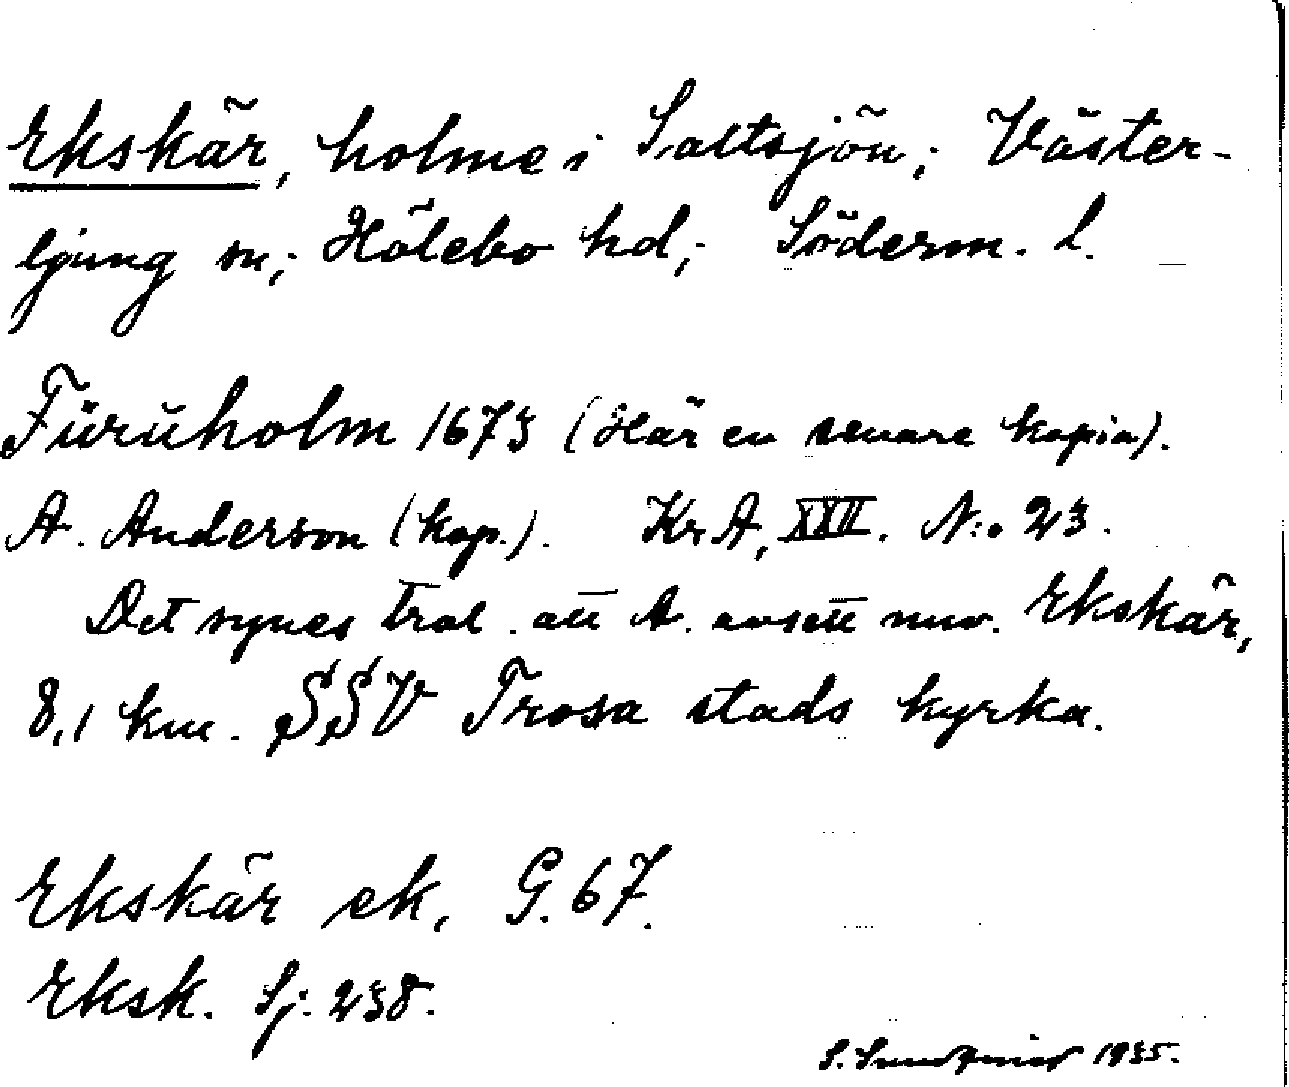 Ekskär, holme i Saltsjön; Väster-
ljung sn; Hölebo hd; Söderm. l.
Furuholm 1673 (Här en senare kopia).
A. Anderson (kop.). Kr.A, XXII. N:o 23.
Det synes trol. att A. avsett nuv. Ekskär,
8,1 km. SSV Trosa stads kyrka.
Ekskär ek, G. 67.
Eksk. Sj. 238.
S. Sundqvist 1935.